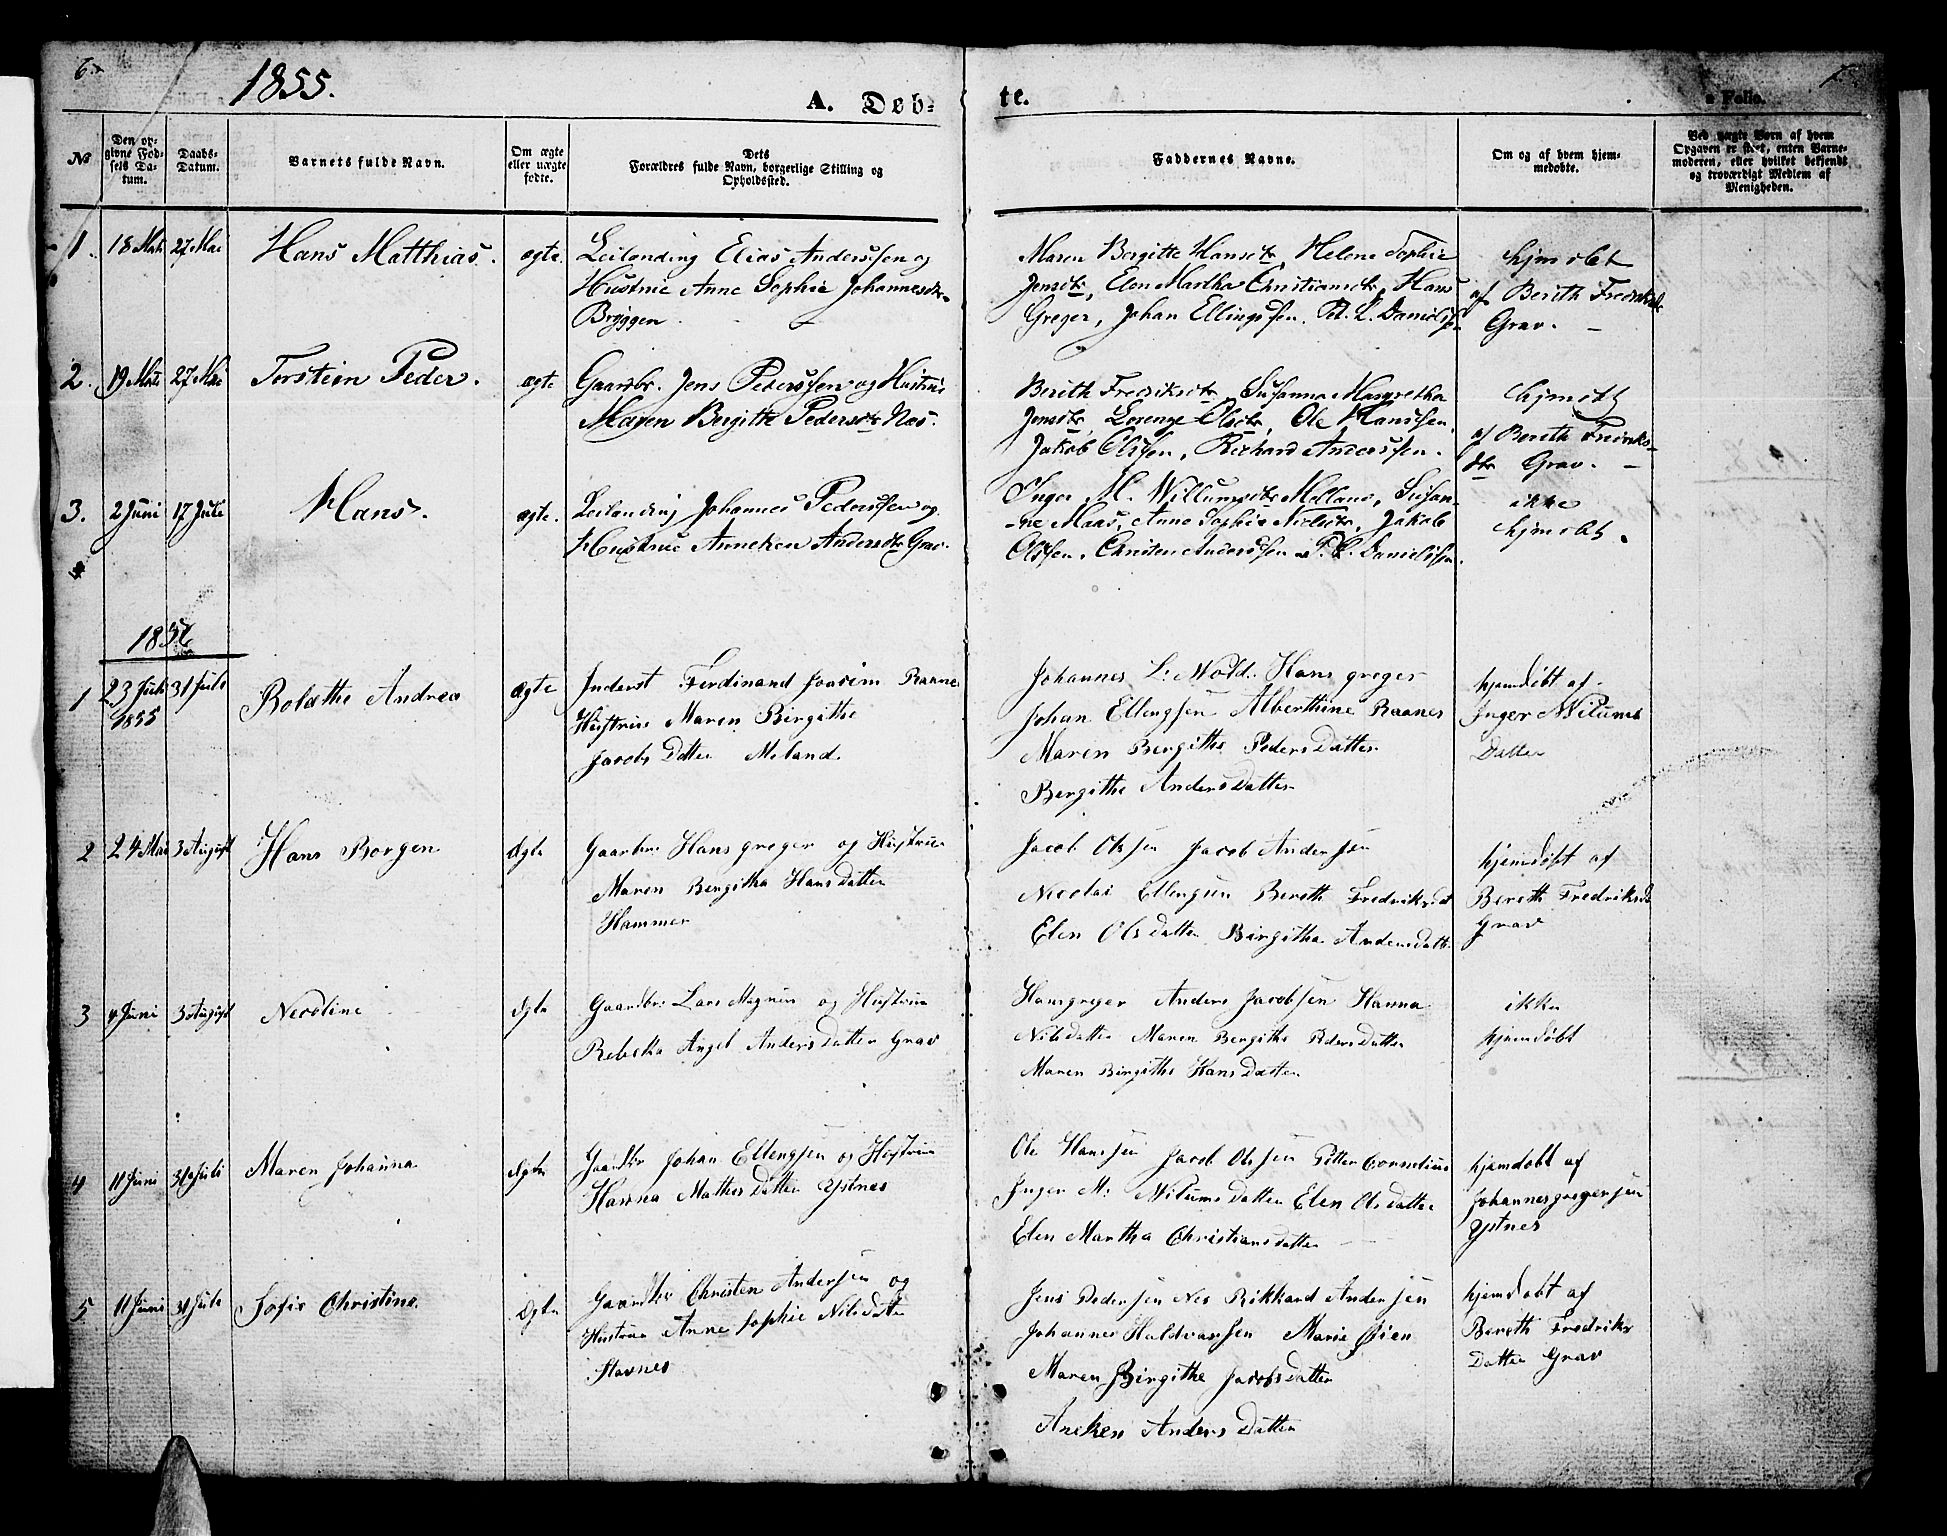 6.
1855.
A. Døb-
te.
Folio.
7
No
Den op-
givne Fød-
sels Da-
tum.
Daabs-
Datum.
Barnets fulde Navn.
Om ægte
eller uægte
fødte.
Dets
Forældres fulde Navn, borgerlige Stilling og
Opholdssted.
Faddernes Navne.
Om og af hvem hjem-
medøbte.
Ved uægte Børn af hvem
Opgaven er skeet, enten Barne-
moderen, eller hvilket bekjendt
og troværdigt Medlem af
Menigheden.
1. 18 Mai 27 Mai Hans Matthias. ægte. Leilending Elias Anderssen og
Hustrue Anne Sophie Johannesdtr
Bryggen.
Maren Bergitte Hansdtr, Helene Sophie
Jensdtr, Elen Martha Christiansdtr, Hans
Greger, Johan Ellingssen. P. L. Danielss.
hjmdbt
af Berith Fredriksdtr
Grav.
2. 19 Mai 27 Mai Torstien Peder. ægte Gaardbr. Jens Pederssen og Hustrue
Maren Bergitte Pedersdtr Næs.
Berith Fredriksdtr, Susanna Margretha
Jensdtr, Lorense Olsdtr, Ole Hanssen,
Jakob Olssen, Richard Anderssen.
hjmdbt
af Berith Fredriks-
dtr Grav.
3. 2 Juni 17 Juli Hans. ægte. Leilending Johannes Pederssen og
Hustrue Anneken Andersdtr Grav.
Inger M. Willumsdtr Melland, Susan-
ne Maas, Anne Sophie Nielsdtr, Jakob
Olssen, Christen Anderssen, P. L. Danielssen.
ikke
hjmdbt.
1 23 Juli
1855
31 Juli Bolæthe Andrea Ægte Inderst Ferdinand Joacim Raanes
Hustrue Maren Birgithe
Jacobs Datter Meland.
Johannes L. Mold. Hans greger
Johan Ellengsen Alberthine Raanes
Maren Bergithe Peders Datter
Bergithe Anders Datter
hjemdøbt af
Inger M Vilums
Datter
2 24 Mai 3 August Hans Borgen Ægte Gaardbr. Hans greger og Hustrue
Maren Bergitha Hans Datter
Hammer
Jacob Olsen Jacob Andersen
Nicolai Ellengsen Bereth Fredriksdat
Elen Ols Datter Birgitha Andersdatter
hjemdøbt af
Bereth Fredriksd
Grav
3 4 Juni 3 August Nicoline Ægte Gaardbr. Lars Magnus og Hustrue
Rebekka Angel Anders Datter Grav
Hansgreger Anders Jacobsen Hanna
Nils Datter Maren Bergithe Peders Datter
Maren Birgithe Hans Datter
ikke
hjemdøbt
4 11 Juni 31 Juli Maren Johanna Ægte Gaardbr Johan Ellengsen og Hustrue
Hanna Mathis Datter Ystnes
Ole Hansen Jacob Olsen Petter Cornelius
Inger M. Vilums Datter Elen Ols Datter
Elen Martha Christians Datter
hjemdøbt af
Johannes gregersen
Ystnes
5 11 Juni 31 Juli Sofie Christine Ægte Gaardbr Christen Andersen og
Hustrue Anne Sophie Nils Datter
Stavnes
Jens Pedersen Nes Rikkard Andersen
Johannes Haldvarsen Marie Øien
Maren Birgithe Jacobs Datter
Aneken Anders Datter
hjemdøbt af
Bereth Fredriks
Datter Grav